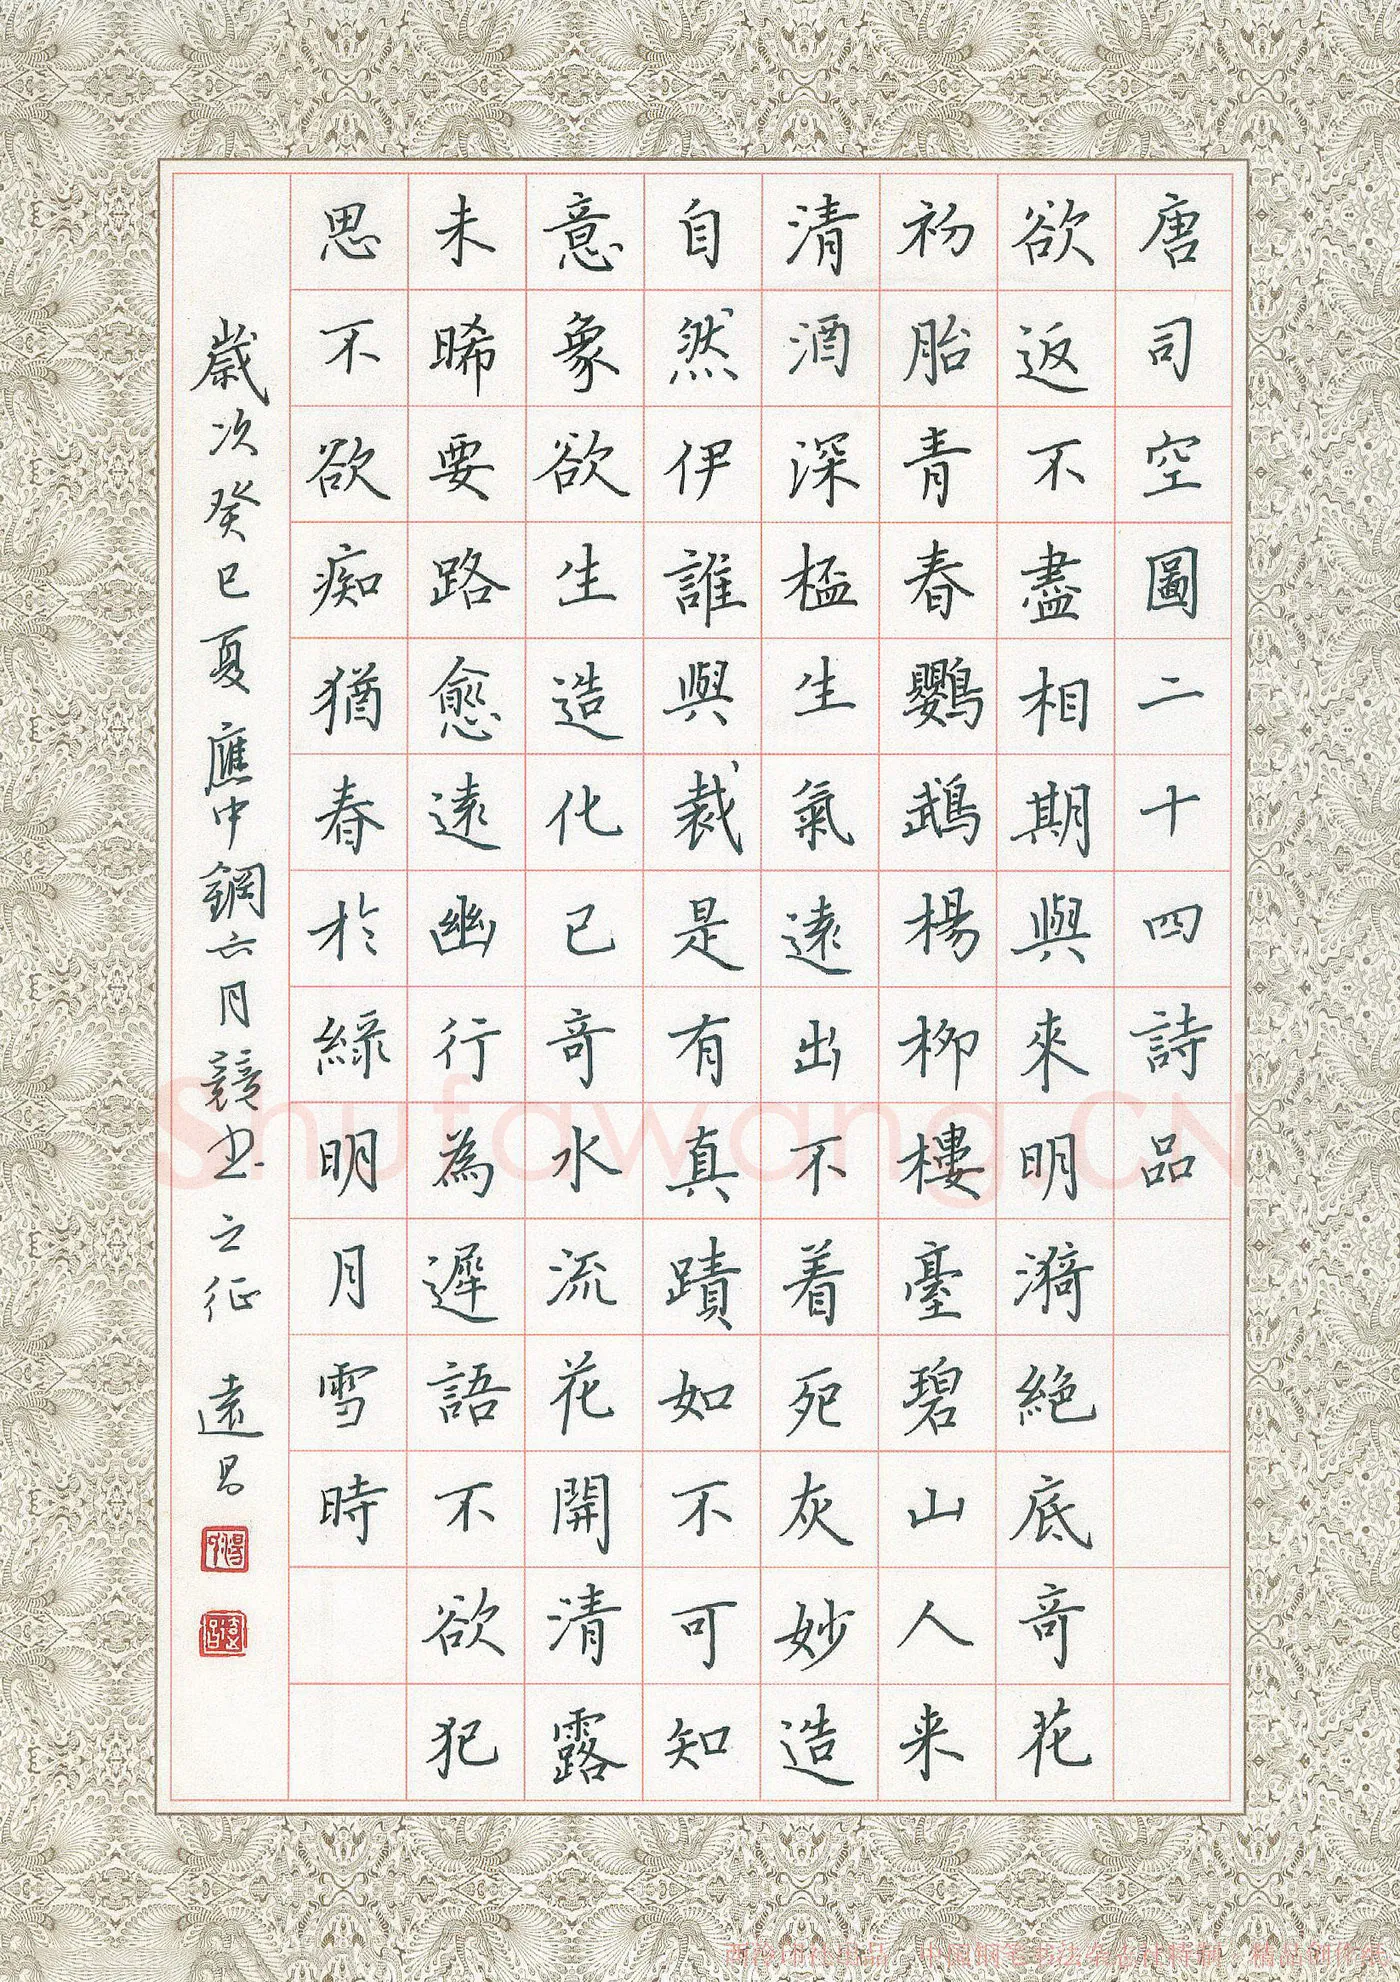 唐司空圖二十四詩品
欲返不盡相期與來明漪絕底奇花
初胎青春鸚鵡楊柳樓臺碧山人来
清酒深杯生氣遠出不着死灰妙造
自然伊誰與裁是有真蹟如不可知
意象欲生造化已奇水流花開清露
未晞要路愈遠幽行為遲語不欲犯
思不欲痴猶春於綠明月雪時
歲次癸巳夏應中鋼六月競书之征 遠昌
Shufawang.CN